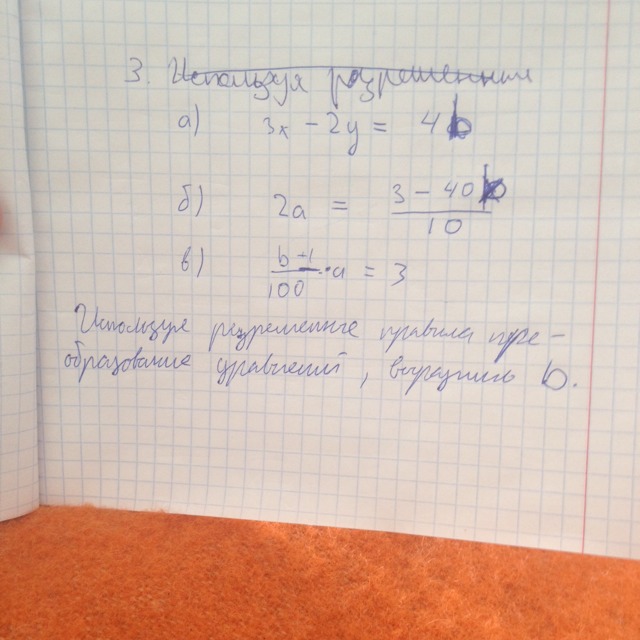 3. Используя разрешённые
а) 3x - 2y = 4b
б) 2a = \frac{3 - 40b}{10}
в) \frac{b-1}{100} \cdot a = 3
Используя разрешенные правила пре-
образование уравнений, выразить b.